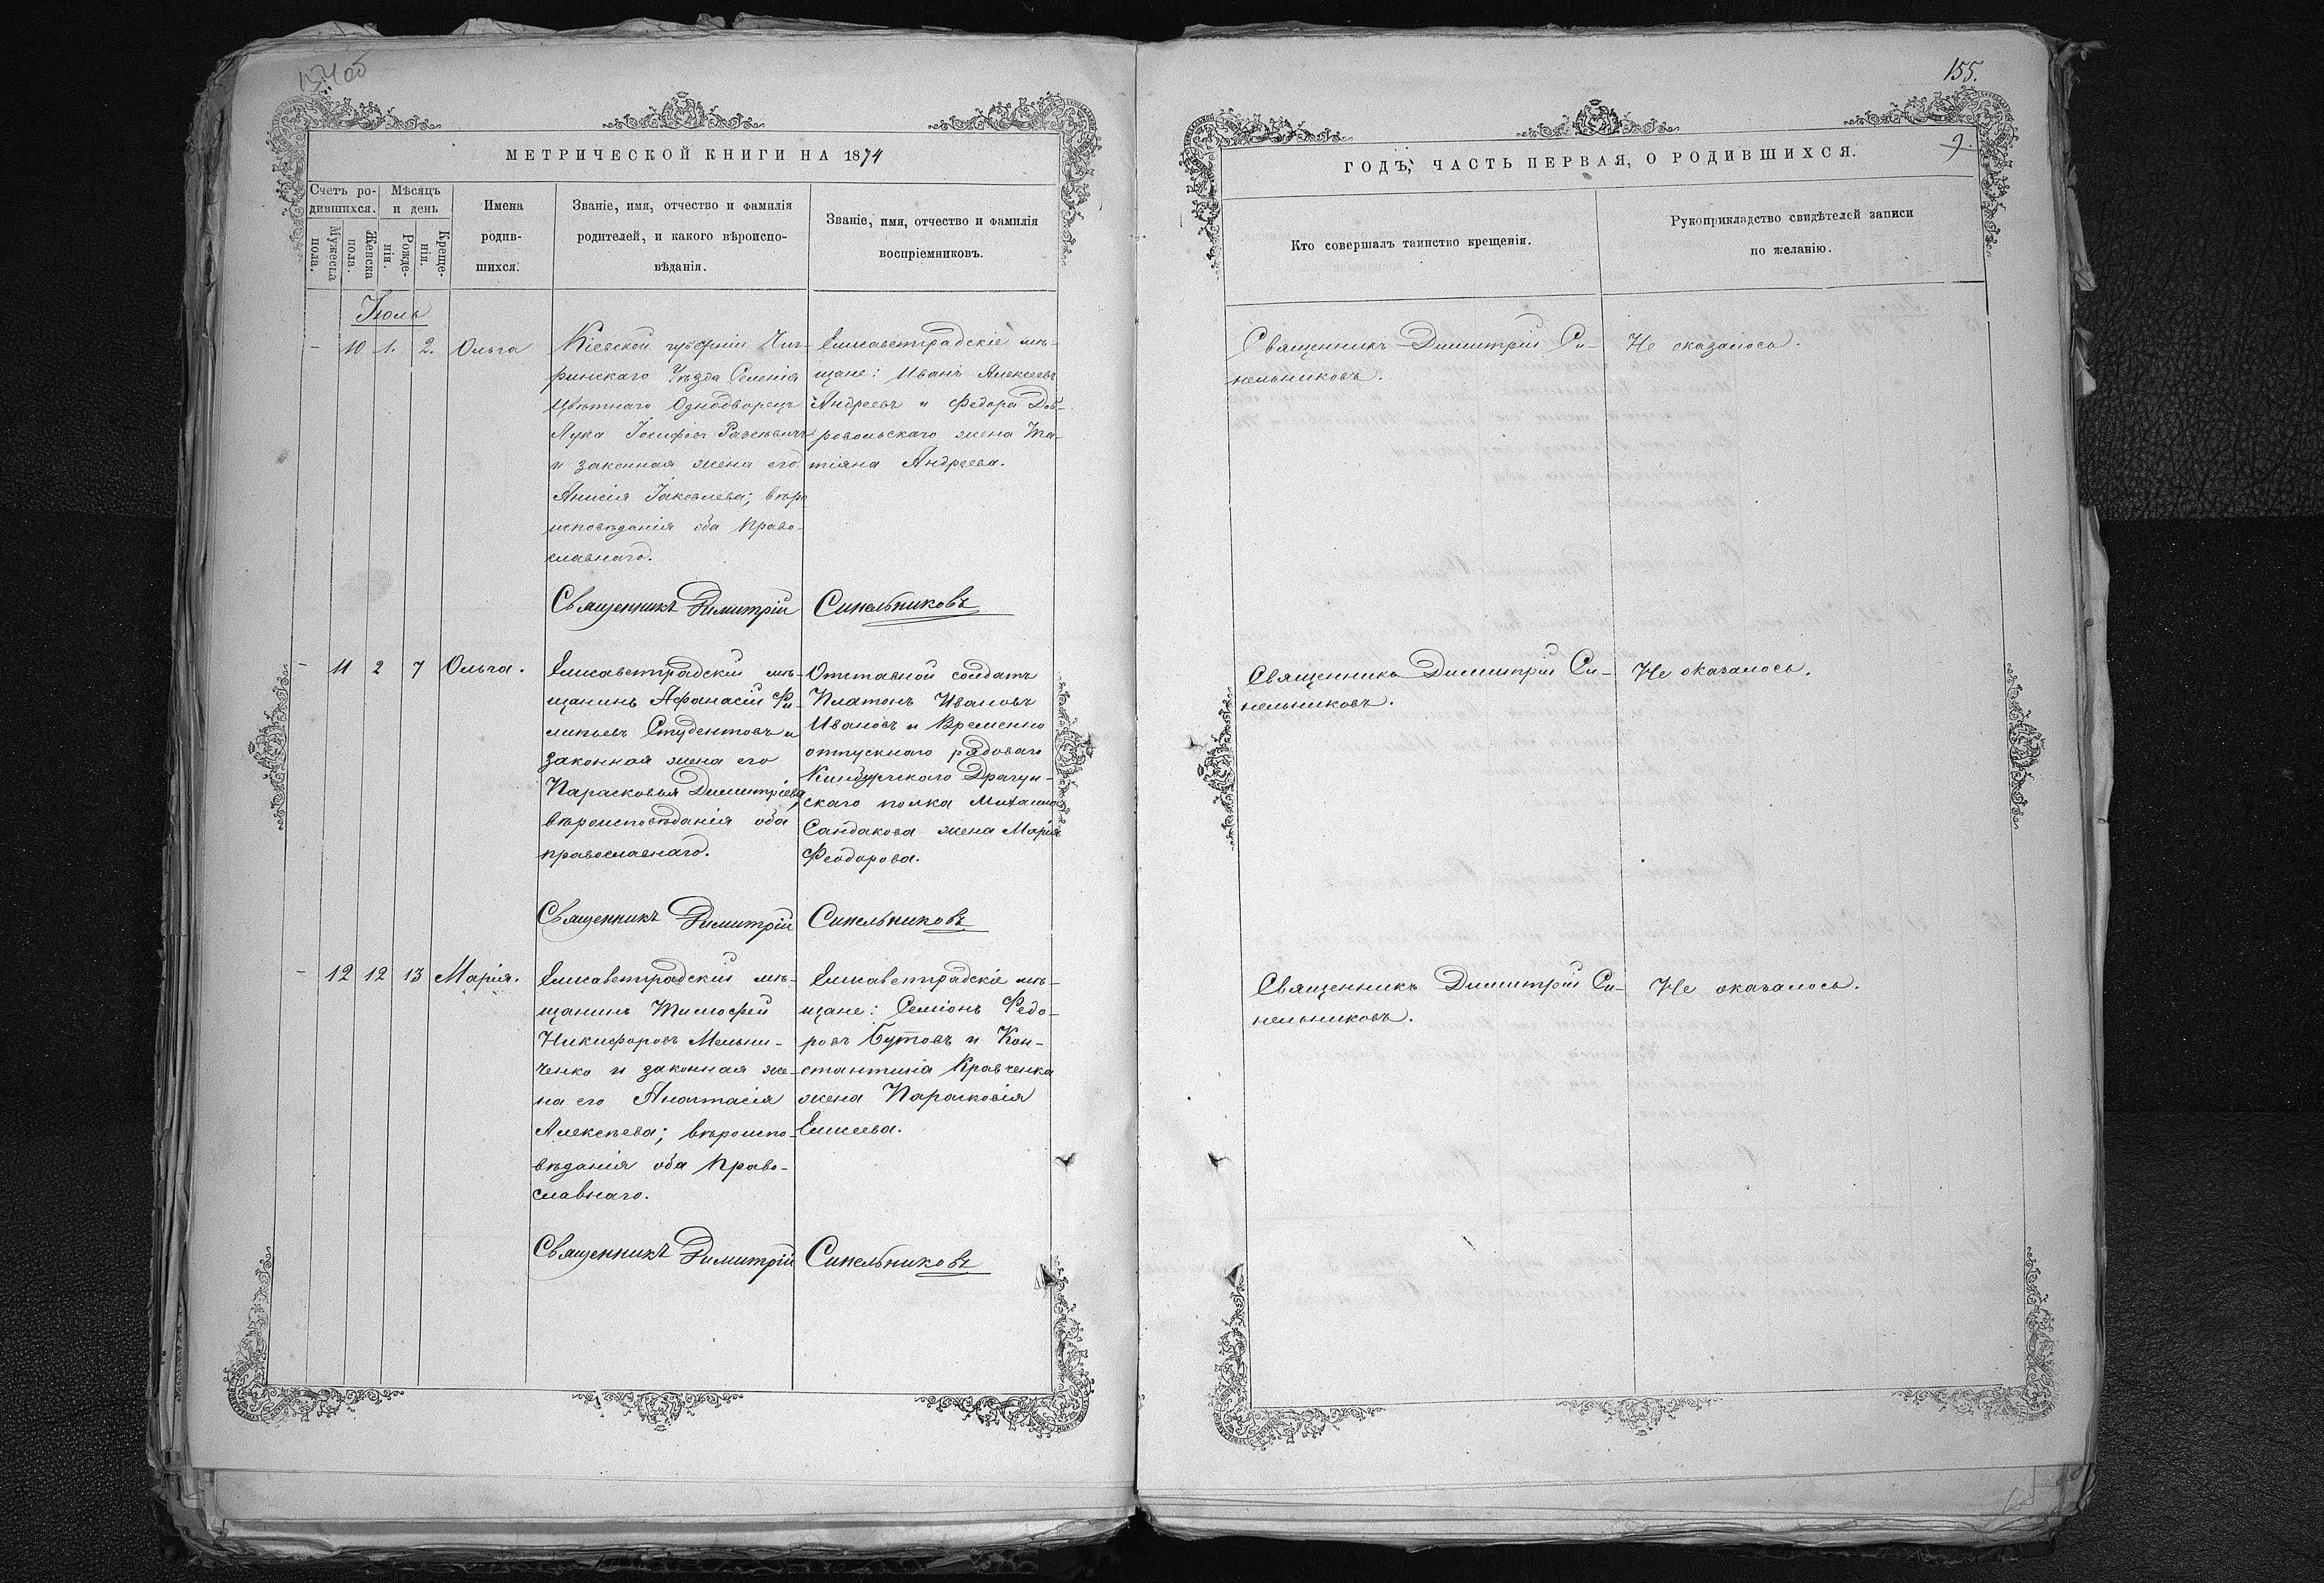 154 об
МЕТРИЧЕСКОЙ КНИГИ НА 1874
Счетъ ро-
дившихся.
Мѣсяцъ
и день
Имена
родив-
шихся.
Званіе, имя, отчество и фамилія
родителей, и какого вѣроиспо-
вѣданія.
Званіе, имя, отчество и фамилія
воспріемниковъ.
Мужеска
пола.
Женска
пола.
Рожде-
нія.
Креще-
нія.
Іюль
- 10 1. 2. Ольга
Кіевской губерніи Чиг-
ринскаго Уѣзда Селенія
Цвѣтнаго Однодворецъ
Лука Іосифовъ
и законная жена его
Анисія Іаковлева; вѣро
исповѣданія оба право-
славнаго.
Елисаветградскіе мѣ-
щане: Иванъ Алексеевъ
Андреевъ и Федора Доб-
ровольскаго жена Та-
тіяна Андреева.
Священникъ Димитрій Синельниковъ
- 11 2 7 Ольга.
Елисаветградскій мѣ-
щанинъ Афанасій Фи-
липьевъ Студентовъ и
законная жена его
Парасковья Димитріева,
вѣроисповѣданія оба
православнаго.
Отставной солдатъ
Платонъ Ивановъ
Ивановъ и Временно
отпускнаго рядоваго
Кинбургскаго Драгун-
скаго полка Михаила
Сандакова жена Марія
Феодорова.
Священникъ Димитрій Синельниковъ
- 12 12 13 Марія.
Елисаветградскій мѣ-
щанинъ Тимофей
Никифоровъ Мельни-
ченко и законная же-
на его Анастасія
Алексѣева; вѣроиспо-
вѣданія оба право-
славнаго.
Елисаветградскіе мѣ-
щане: Семіонъ Федо-
ровъ Бутовъ и Кон-
стантина Кравченка
жена Парасковія
Елисеева.
Священникъ Димитрій Синельниковъ
155.
9.
ГОДЪ, ЧАСТЬ ПЕРВАЯ, О РОДИВШИХСЯ.
Кто совершалъ таинство крещенія.
Рукоприкладство свидѣтелей записи
по желанію.
Священникъ Димитрій Си-
нельниковъ.
Не оказалось.
Священникъ Димитрій Си-
нельниковъ.
Не оказалось.
Священникъ Димитрій Си-
нельниковъ.
Не оказалось.